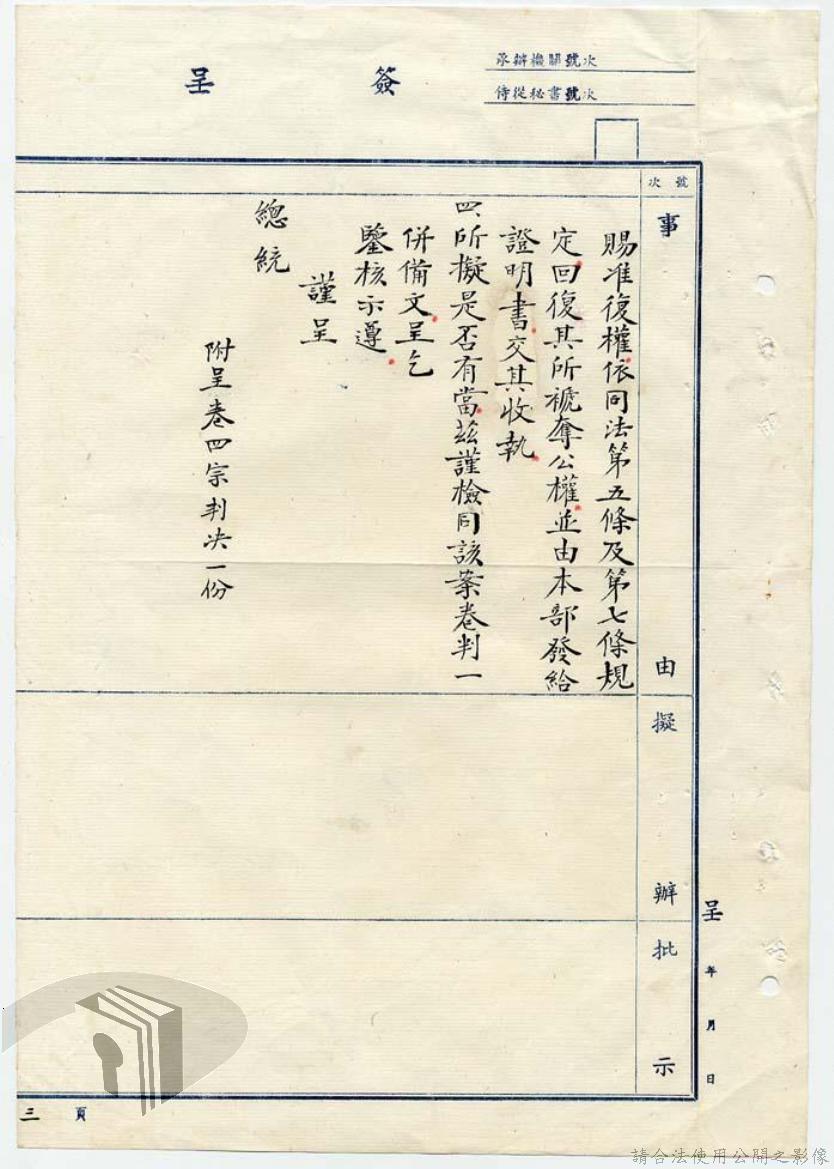 簽呈
承辦機關號次
侍從秘書號次
號次
事由
擬辦
批示
賜准復權依同法第五條及第七條規
定回復其所褫奪公權並由本部發給
證明書交其收執
四、所擬是否有當茲謹檢同該案卷判一
併備文呈乞
鑒核示遵
謹呈
總統
附呈卷四宗判决一份
呈 年 月 日
三頁
請合法使用公開之影像